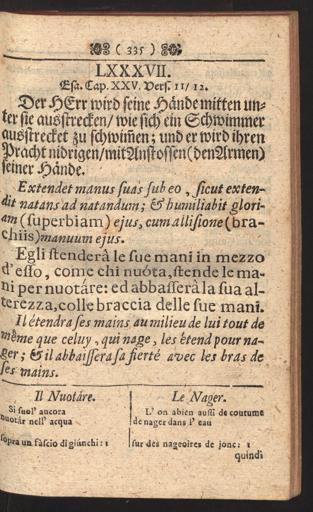 ( 335 )
LXXXVII.
Esa. Cap. XXV. Vers. 11/ 12.
Der HErr wird seine Hände mitten un-
ter sie ausstrecken/ wie sich ein Schwimmer
ausstrecket zu schwim̃en; und er wird ihren
Pracht nidrigen/mit Anstossen (den Armen)
seiner Hände.
Extendet manus suas sub eo, sicut exten-
dit natans ad natandum; & humiliabit glori-
am (superbiam) ejus, cum allisione (bra-
chiis) manuum ejus.
Egli stenderà le sue mani in mezzo
d'esso, come chi nuóta, stende le ma-
ni per nuotáre: ed abbasserà la sua al-
terezza, colle braccia delle sue mani.
Il étendra ses mains au milieu de lui tout de
même que celuy, qui nage, les étend pour na-
ger; & il abbaissera sa fierté avec les bras de
ses mains.
Il Nuotáre.
Si suol' ancora
nuotár nell' acqua
sopra un fáscio di giúnchi: 1
Le Nager.
L' on abien aussi de coutume
de nager dans l' eau
sur des nageoires de jonc: 1
quindi